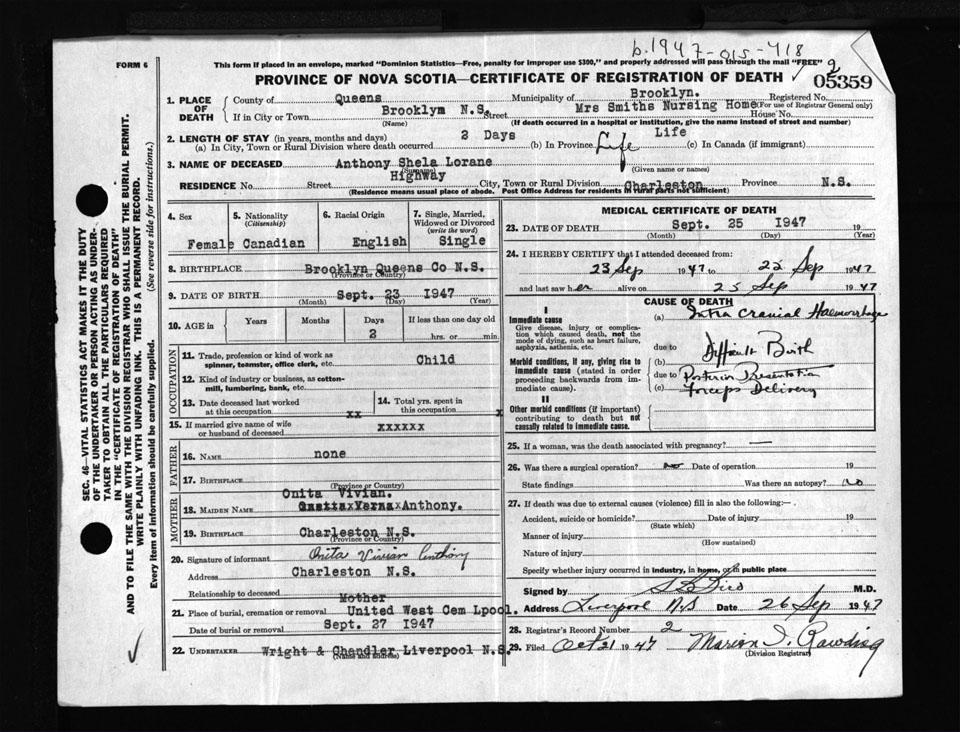 b.1947-015-418
2
FORM 6
This form if placed in an envelope, marked "Dominion Statistics—Free, penalty for improper use $300," and properly addressed will pass through the mail "FREE"
PROVINCE OF NOVA SCOTIA—CERTIFICATE OF REGISTRATION OF DEATH
05359
1. PLACE OF DEATH
County of Queens Municipality of Brooklyn. Registered No.
(For use of Registrar General only)
If in City or Town Brooklym N.S. Street Mrs Smiths Nursing Home House No.
(Name) (If death occurred in a hospital or institution, give the name instead of street and number)
2. LENGTH OF STAY (in years, months and days)
(a) In City, Town or Rural Division where death occurred 2 Days (b) In Province Life Life (c) In Canada (if immigrant)
3. NAME OF DECEASED Anthony Shela Lorane
(Surname) (Given name or names)
RESIDENCE No. Street Highway City, Town or Rural Division Charleston Province N.S.
(Residence means usual place of abode. Post Office Address for residents in rural parts not sufficient)
4. Sex Female
5. Nationality (Citizenship) Canadian
6. Racial Origin English
7. Single, Married, Widowed or Divorced (write the word) Single
8. BIRTHPLACE Brooklyn Queens Co N.S.
(Province or Country)
9. DATE OF BIRTH Sept. 23 1947
(Month) (Day) (Year)
10. AGE in Years Months Days If less than one day old
2 hrs. or min.
OCCUPATION
11. Trade, profession or kind of work as spinner, teamster, office clerk, etc. Child
12. Kind of industry or business, as cotton-mill, lumbering, bank, etc.
13. Date deceased last worked at this occupation xx
14. Total yrs. spent in this occupation x
15. If married give name of wife or husband of deceased xxxxxx
FATHER
16. NAME none
17. BIRTHPLACE
(Province or Country)
MOTHER
Onita Vivian.
18. MAIDEN NAME Anthony.
19. BIRTHPLACE Charleston N.S.
(Province or Country)
20. Signature of informant Onita Vivian Anthony
Address Charleston N.S.
Relationship to deceased Mother
21. Place of burial, cremation or removal United West Cem Lpool.
Date of burial or removal Sept. 27 1947
22. UNDERTAKER Wright & Chandler Liverpool N.S.
(Name and address)
MEDICAL CERTIFICATE OF DEATH
23. DATE OF DEATH Sept. 25 1947 19
(Month) (Day) (Year)
24. I HEREBY CERTIFY that I attended deceased from:
23 Sep 1947 to 25 Sep 1947
and last saw her alive on 25 Sep 1947
CAUSE OF DEATH
I
Immediate cause
Give disease, injury or complication which caused death, not the mode of dying, such as heart failure, asphyxia, asthenia, etc.
(a) Intra Cranial Haemorrhage
due to
Morbid conditions, if any, giving rise to immediate cause (stated in order proceeding backwards from immediate cause).
(b) Difficult Birth
due to Posterior Presentation
(c) Forceps Delivery
II
Other morbid conditions (if important) contributing to death but not causally related to immediate cause.
25. If a woman, was the death associated with pregnancy? —
26. Was there a surgical operation? no Date of operation 19
State findings Was there an autopsy? no
27. If death was due to external causes (violence) fill in also the following:—
Accident, suicide or homicide? Date of injury 19
(State which)
Manner of injury
(How sustained)
Nature of injury
Specify whether injury occurred in industry, in home, or in public place
Signed by M.D.
Address Liverpool N.S Date 26 Sep 1947
28. Registrar's Record Number 2
29. Filed Oct 21 1947 Marion I. Rawding
(Division Registrar)
SEC. 46—VITAL STATISTICS ACT MAKES IT THE DUTY
OF THE UNDERTAKER OR PERSON ACTING AS UNDERTAKER
TO OBTAIN ALL THE PARTICULARS REQUIRED
IN THE "CERTIFICATE OF REGISTRATION OF DEATH"
AND TO FILE THE SAME WITH THE DIVISION REGISTRAR WHO SHALL ISSUE THE BURIAL PERMIT.
WRITE PLAINLY WITH UNFADING INK. THIS IS A PERMANENT RECORD.
Every item of information should be carefully supplied. (See reverse side for instructions.)